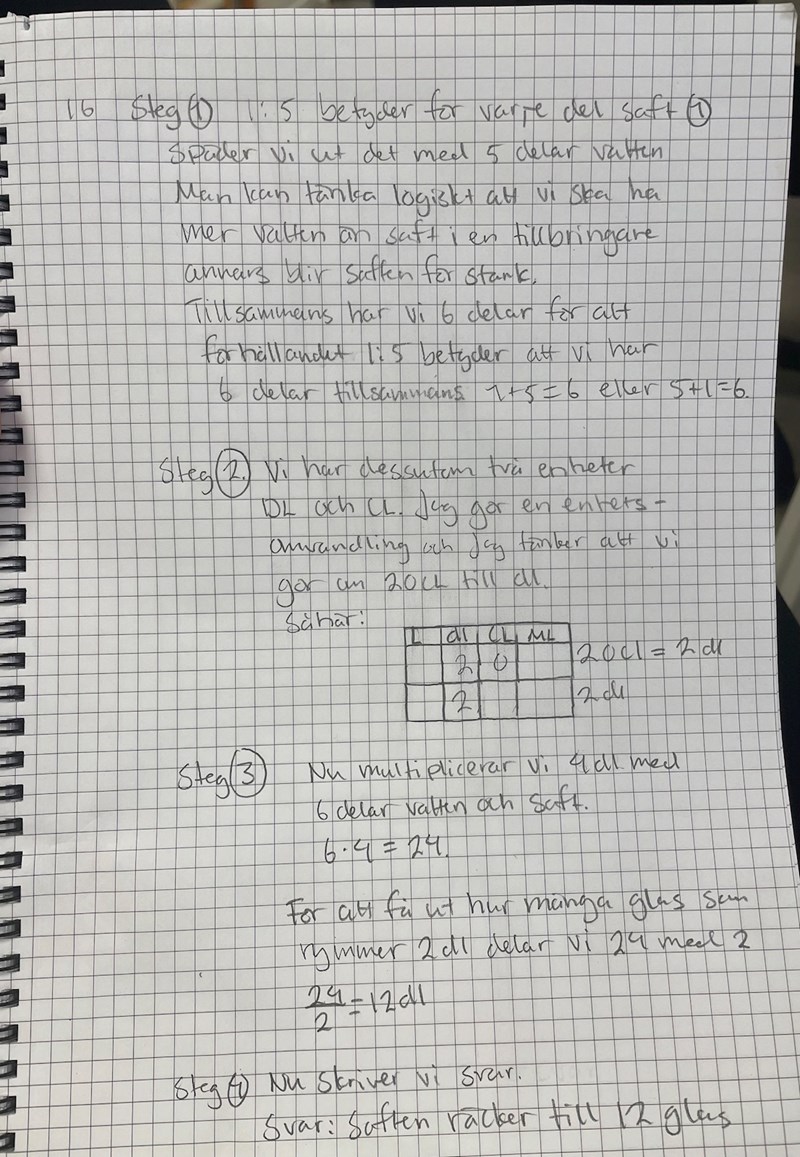 16 Steg ① 1:5 betyder för varje del saft ①
späder vi ut det med 5 delar vatten
Man kan tänka logiskt att vi ska ha
mer vatten än saft i en tillbringare
annars blir saften för stark.
Tillsammans har vi 6 delar för att
förhållandet 1:5 betyder att vi har
6 delar tillsammans 1+5=6 eller 5+1=6.
Steg ② Vi har dessutom två enheter
DL och CL. Jag gör en enhets-
omvandling och jag tänker att vi
gör om 20CL till dl.
Såhär:
L dl CL ML
2 0 20Cl = 2 dl
2 2dl
Steg ③ Nu multiplicerar vi 4dl med
6 delar vatten och saft.
6·4=24.
För att få ut hur många glas som
rymmer 2dl delar vi 24 med 2
24/2=12dl
Steg ④ Nu skriver vi svar.
Svar: Saften räcker till 12 glas